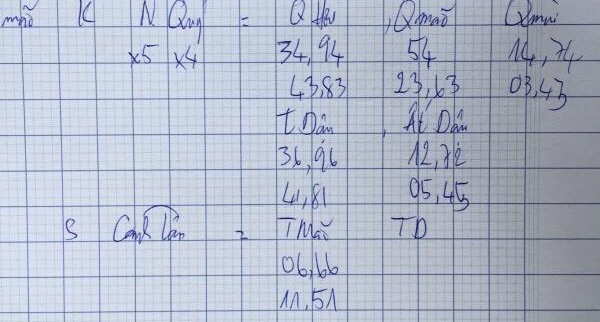 mão K N Quý = Q Hợi , Q mão Q mùi
x5 x4 34,94 54 14,74
43,83 23,63 03,43
T Dần , Ất Dần
36,96 12,72
41,81 05,45
S Canh = T Mão T D
06,66
11,51